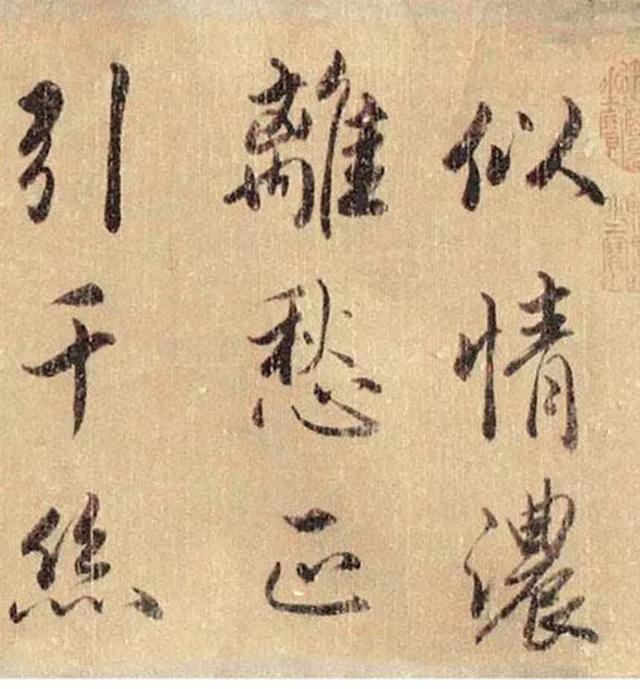 似情濃
離愁正
引千絲